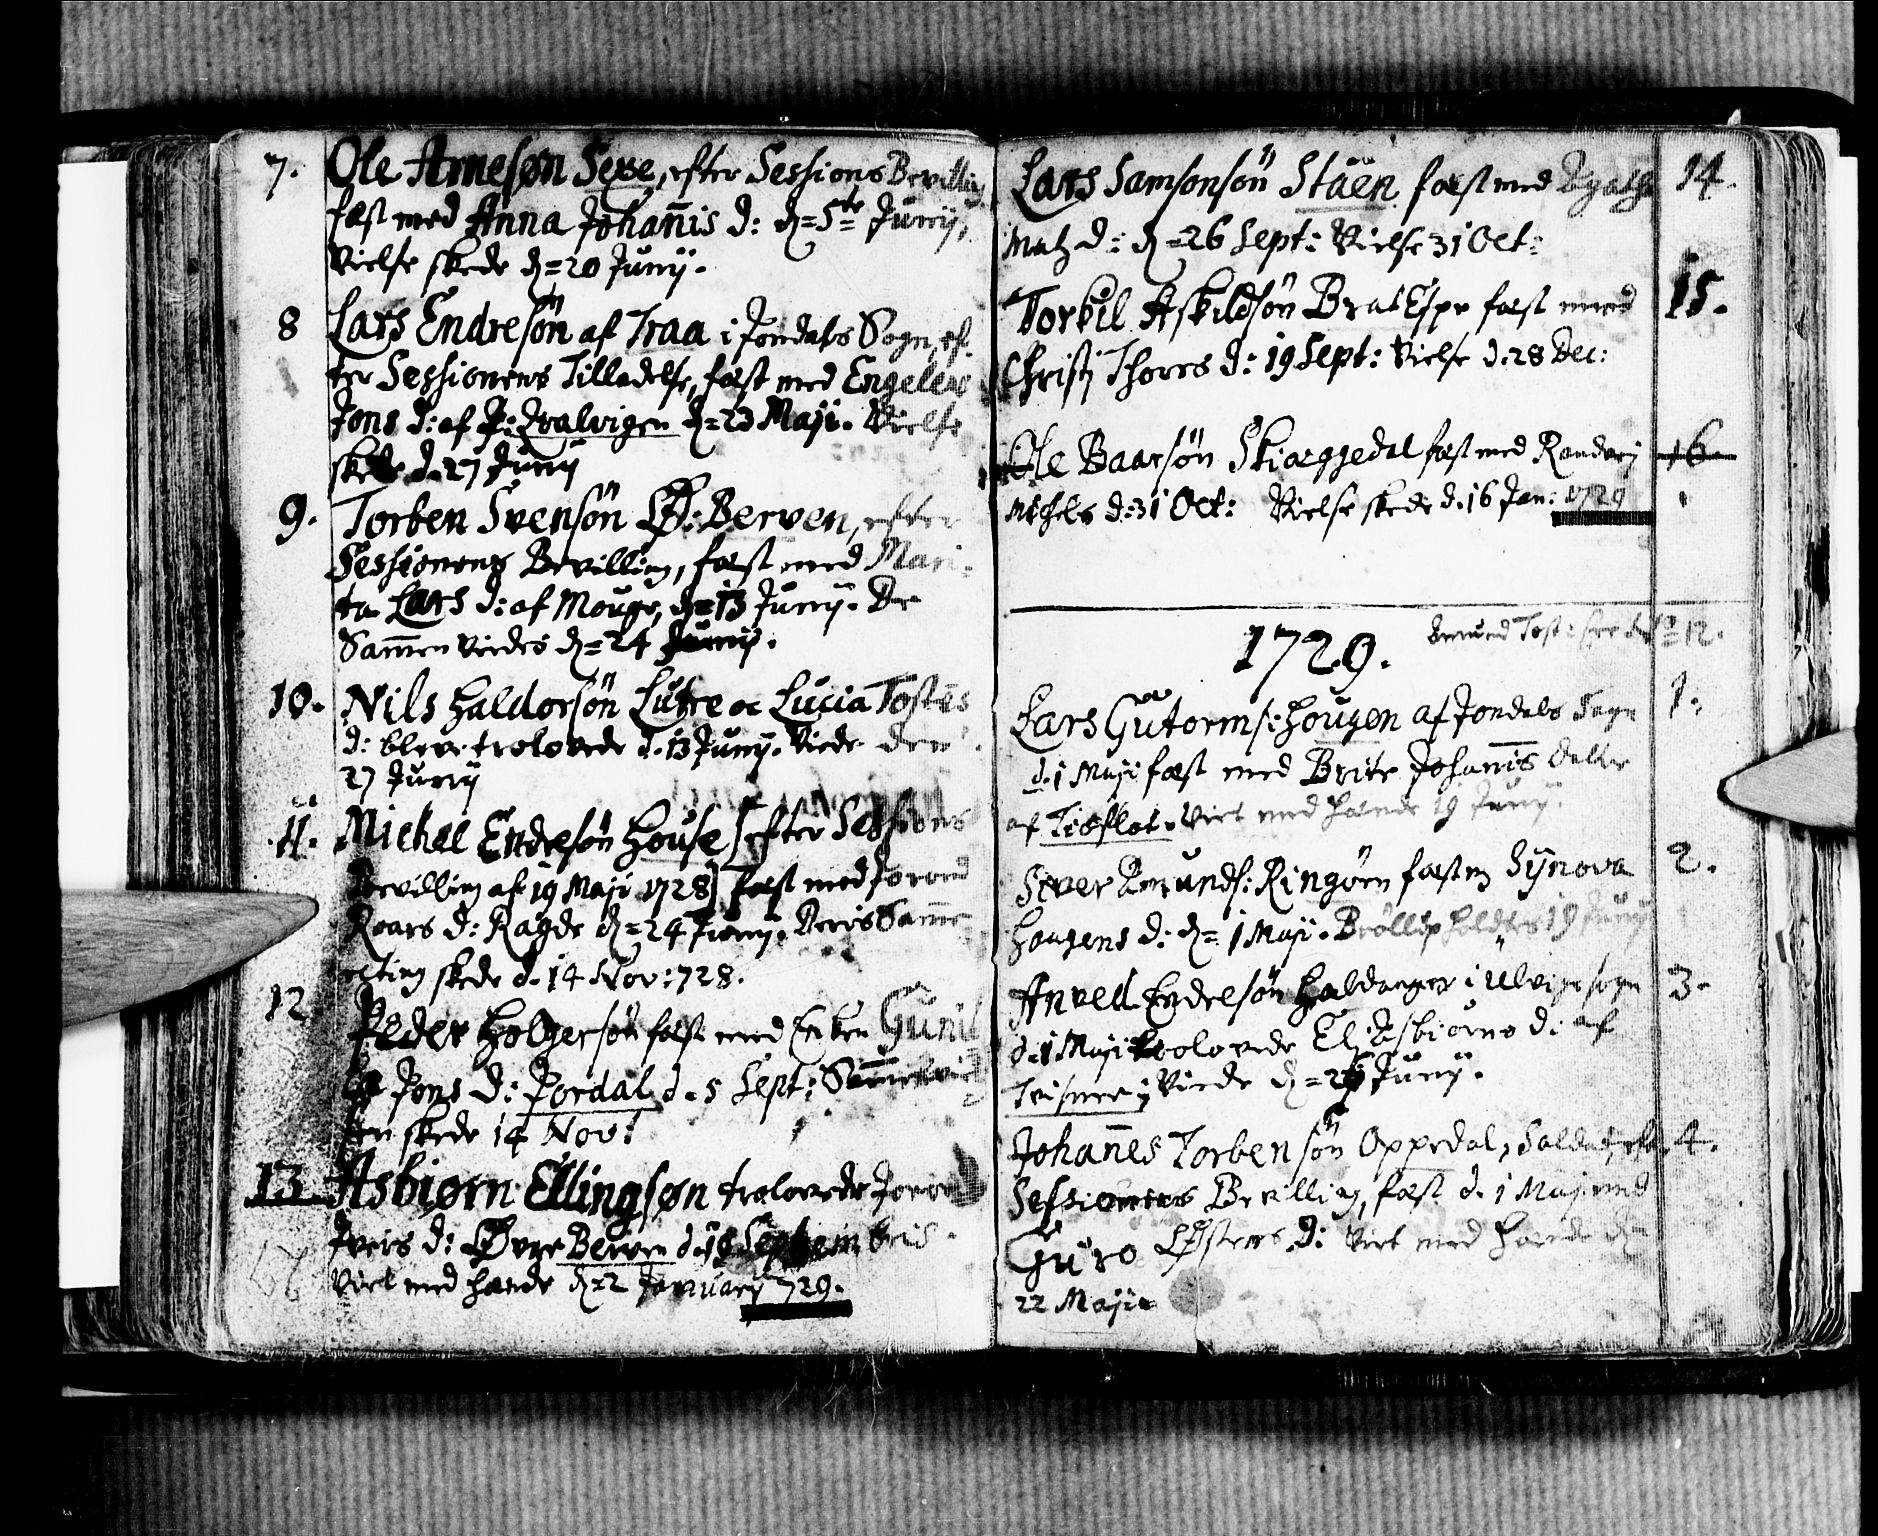 7. Ole Arnesøn Sexe, efter Sessions Bevilling
fæst med Anna Johannis d: d = 5te Junij,
Vielse skede d = 20 Junij.
8 Lars Endresøn af Traa i Jondals Sogn, ef-
ter Sessionens Tilladelse, fæst med Engelene
Jons d: af P: Qvalvigen d = 23 Maji. Vielse
skede d. 27 Junij
9. Torben Svensøn LØ: Berven, efter
Sessionens Bevilling, fæst med Mari-
ta Lars d: af Mouge, d = 13 Junij. De
Sammen viedes d = 24 Junij.
10. Nils Haldorsøn Lutre oc Lucia Tostes
d: bleve trolovede d. 13 Junij. Viede den
27 Junij
11. Michel Endresøn House [efter Sessions
Bevilling af 19 Maji 1728] fæst med Joroni
Roars d: Ragde d = 24 Junij. Deris Samme-
skede d. 14 Nov: 728.
12 Peder Holgersøn fæst med Enken Gunil-
Jons D: Jordal d. 5 Sept: Sammenvie-
skede 14 Nov:
13 Asbiørn Ellingsøn trolovede Joron
Ivers d: Øvre Berven d. 19 Septembris.
Viet med hænde d = 2 January 729.
Lars Samsonsøn Stäen fæst med Agatha 14.
Matz d: d = 26 Sept: Vielse 31 Oct:
Torkil Askildsøn BratEspe fæst med 15.
Christj Thorrs d: 19 Sept: Vielse d. 28 Dec:
Ole Baarsøn Skiæggedal fæst med Randvej 16.
Michels d: 31 Oct: Vielse skede d. 16 Jan: 1729
1729. Amund Tost: see No 12.
Lars Gutorms: Hougen af Jondals Sogn 1.
d. 1 Maji fæst med Brite Johannis Datter
af Tioflot. Viet med hænde 19 Junij.
Siver Amunds: Ringøen fæst m Synova 2.
Hougens d: d = 1 Maji. Brøllup holdtes 19 Junij
Anved Endresøn Haldanger i Ulvigs sogn 3.
d. 1 Maji trolovede Eli Asbiørns d: af
Teisnæs; Viede d = 26 Junij.
Johannes Torbensøn Oppedal, Soldat, efter 4.
Sessionens Bevilling, fæst d. 1 Maji med
Guro LØstens D: Viet med Hænde d =
22 Maji.